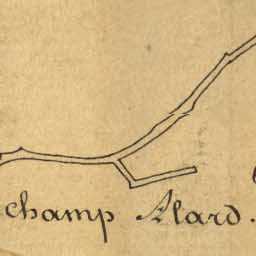 champ Alard.